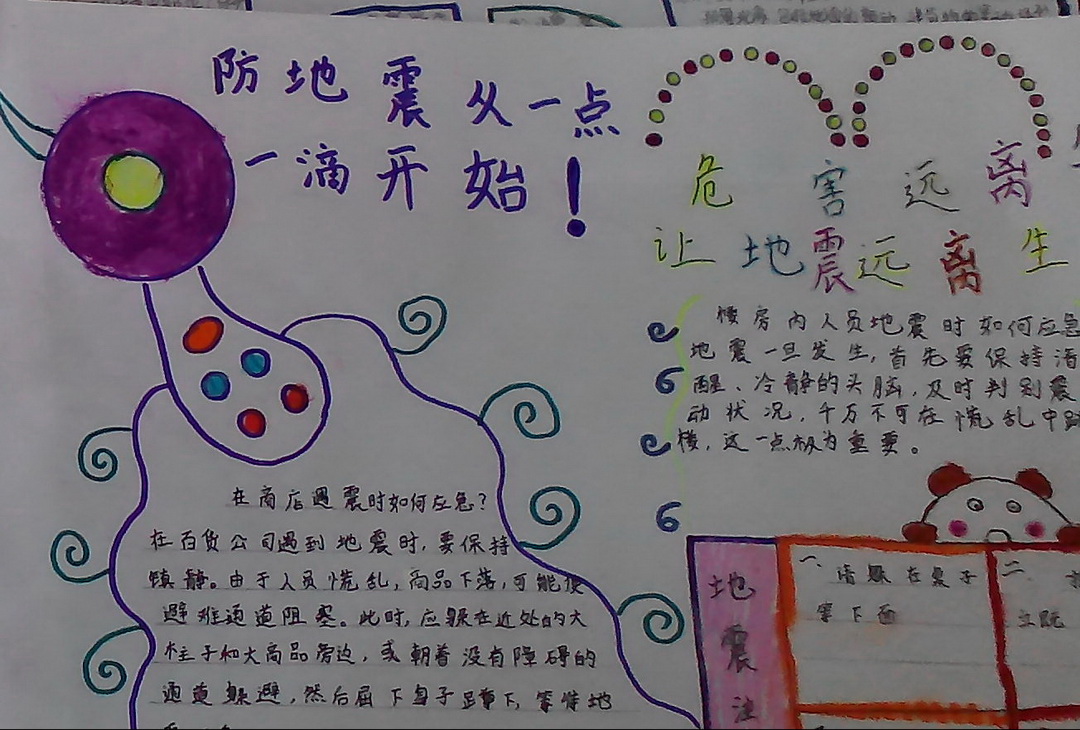 防地震从一点
一滴开始！
危害远离
让地震远离生
楼房内人员地震时如何应急
地震一旦发生，首先要保持清
醒、冷静的头脑，及时判别震
动状况，千万不可在慌乱中跳
楼，这一点极为重要。
在商店遇震时如何应急？
在百货公司遇到地震时，要保持
镇静。由于人员慌乱，商品下落，可能使
避难通道阻塞。此时，应躲在近处的大
柱子和大商品旁边，或朝着没有障碍的
通道躲避，然后屈下身子蹲下，等待地
地震注
一、请躲在桌子
等下面
二
立既